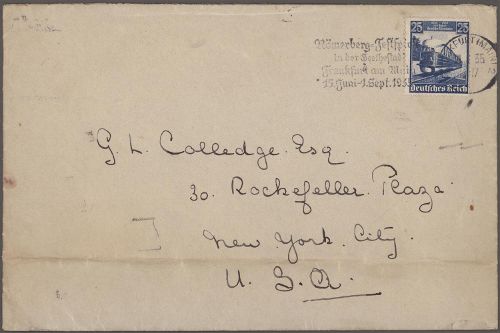 25 25
Deutsches Reich
Römerberg-Festspiele
in der Goethestadt
Frankfurt am Main
15. Juni-1. Sept. 193
G. L. Colledge. Esq.
30. Rockefeller. Plaza.
New. York. City.
U. S. A.